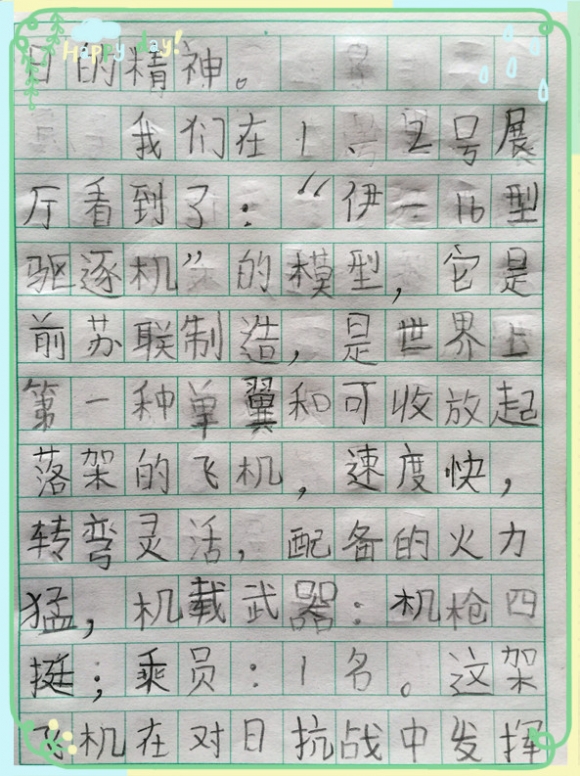 Happy day!
日的精神。
我们在1、2号展
厅看到了：“伊一16型
驱逐机”的模型，它是
前苏联制造，是世界上
第一种单翼和可收放起
落架的飞机，速度快，
转弯灵活，配备的火力
猛，机载武器：机枪四
挺；乘员：1名。这架
飞机在对日抗战中发挥